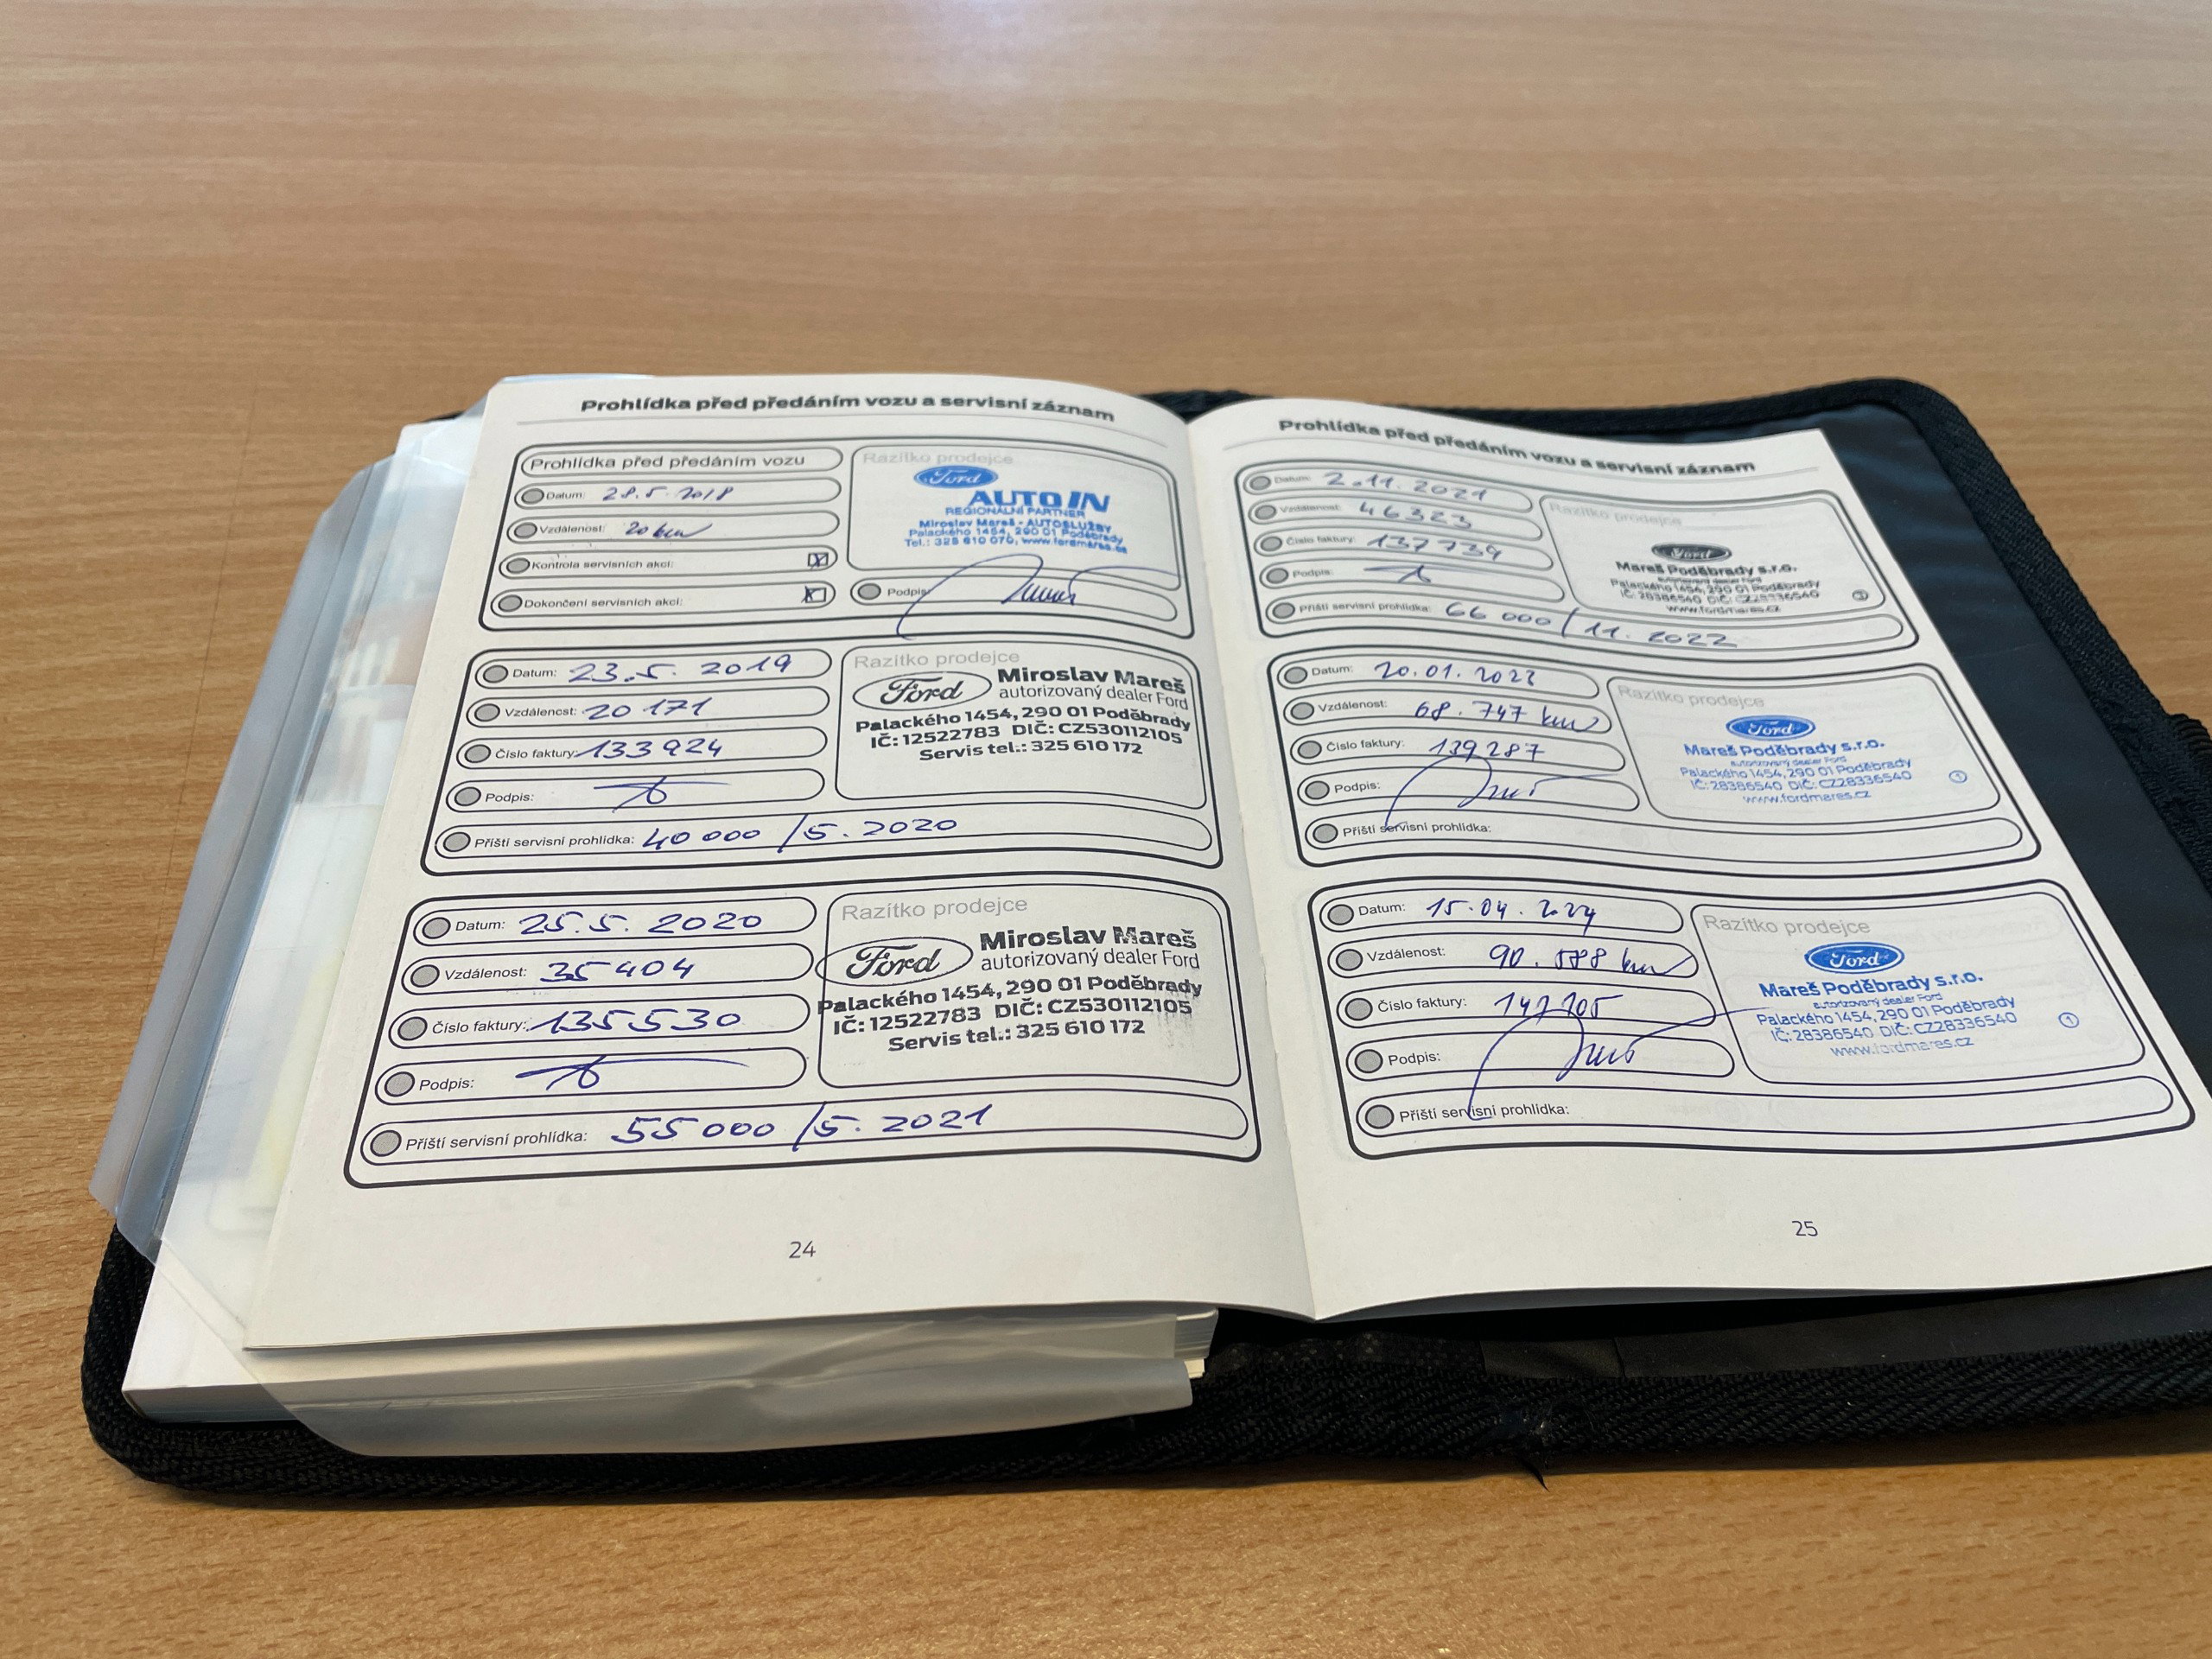 Prohlídka před předáním vozu a servisní záznam
Prohlídka před předáním vozu
Datum: 28.5.2018
Vzdálenost: 20 km
Kontrola servisních akcí:
Dokončení servisních akcí:
Razítko prodejce
Ford
AUTO IN
REGIONÁLNÍ PARTNER
Miroslav Mareš - AUTOSLUŽBY
Palackého 1454, 290 01 Poděbrady
Tel.: 325 610 070, www.fordmares.cz
Podpis:
Datum: 23.5. 2019
Vzdálenost: 20 171
Číslo faktury: 133924
Podpis:
Příští servisní prohlídka: 40 000 /5. 2020
Razítko prodejce
Ford
Miroslav Mareš
autorizovaný dealer Ford
Palackého 1454, 290 01 Poděbrady
IČ: 12522783 DIČ: CZ530112105
Servis tel.: 325 610 172
Datum: 25.5. 2020
Vzdálenost: 35 404
Číslo faktury: 135530
Podpis:
Příští servisní prohlídka: 55 000 /5. 2021
Razítko prodejce
Ford
Miroslav Mareš
autorizovaný dealer Ford
Palackého 1454, 290 01 Poděbrady
IČ: 12522783 DIČ: CZ530112105
Servis tel.: 325 610 172
24
Prohlídka před předáním vozu a servisní záznam
Datum: 2.11. 2021
Vzdálenost: 46323
Číslo faktury: 137739
Podpis:
Příští servisní prohlídka: 66 000 / 11. 2022
Razítko prodejce
Ford
Mareš Poděbrady s.r.o.
autorizovaný dealer Ford
Palackého 1454, 290 01 Poděbrady
IČ: 28386540 DIČ: CZ28336540
www.fordmares.cz
Datum: 20.01.2023
Vzdálenost: 68.747 km
Číslo faktury: 139287
Podpis:
Příští servisní prohlídka:
Razítko prodejce
Ford
Mareš Poděbrady s.r.o.
autorizovaný dealer Ford
Palackého 1454, 290 01 Poděbrady
IČ: 28386540 DIČ: CZ28336540
www.fordmares.cz
1
Datum: 15.04.2024
Vzdálenost: 90.588 km
Číslo faktury:
Podpis:
Příští servisní prohlídka:
Razítko prodejce
Ford
Mareš Poděbrady s.r.o.
autorizovaný dealer Ford
Palackého 1454, 290 01 Poděbrady
IČ: 28386540 DIČ: CZ28336540
www.fordmares.cz
1
25